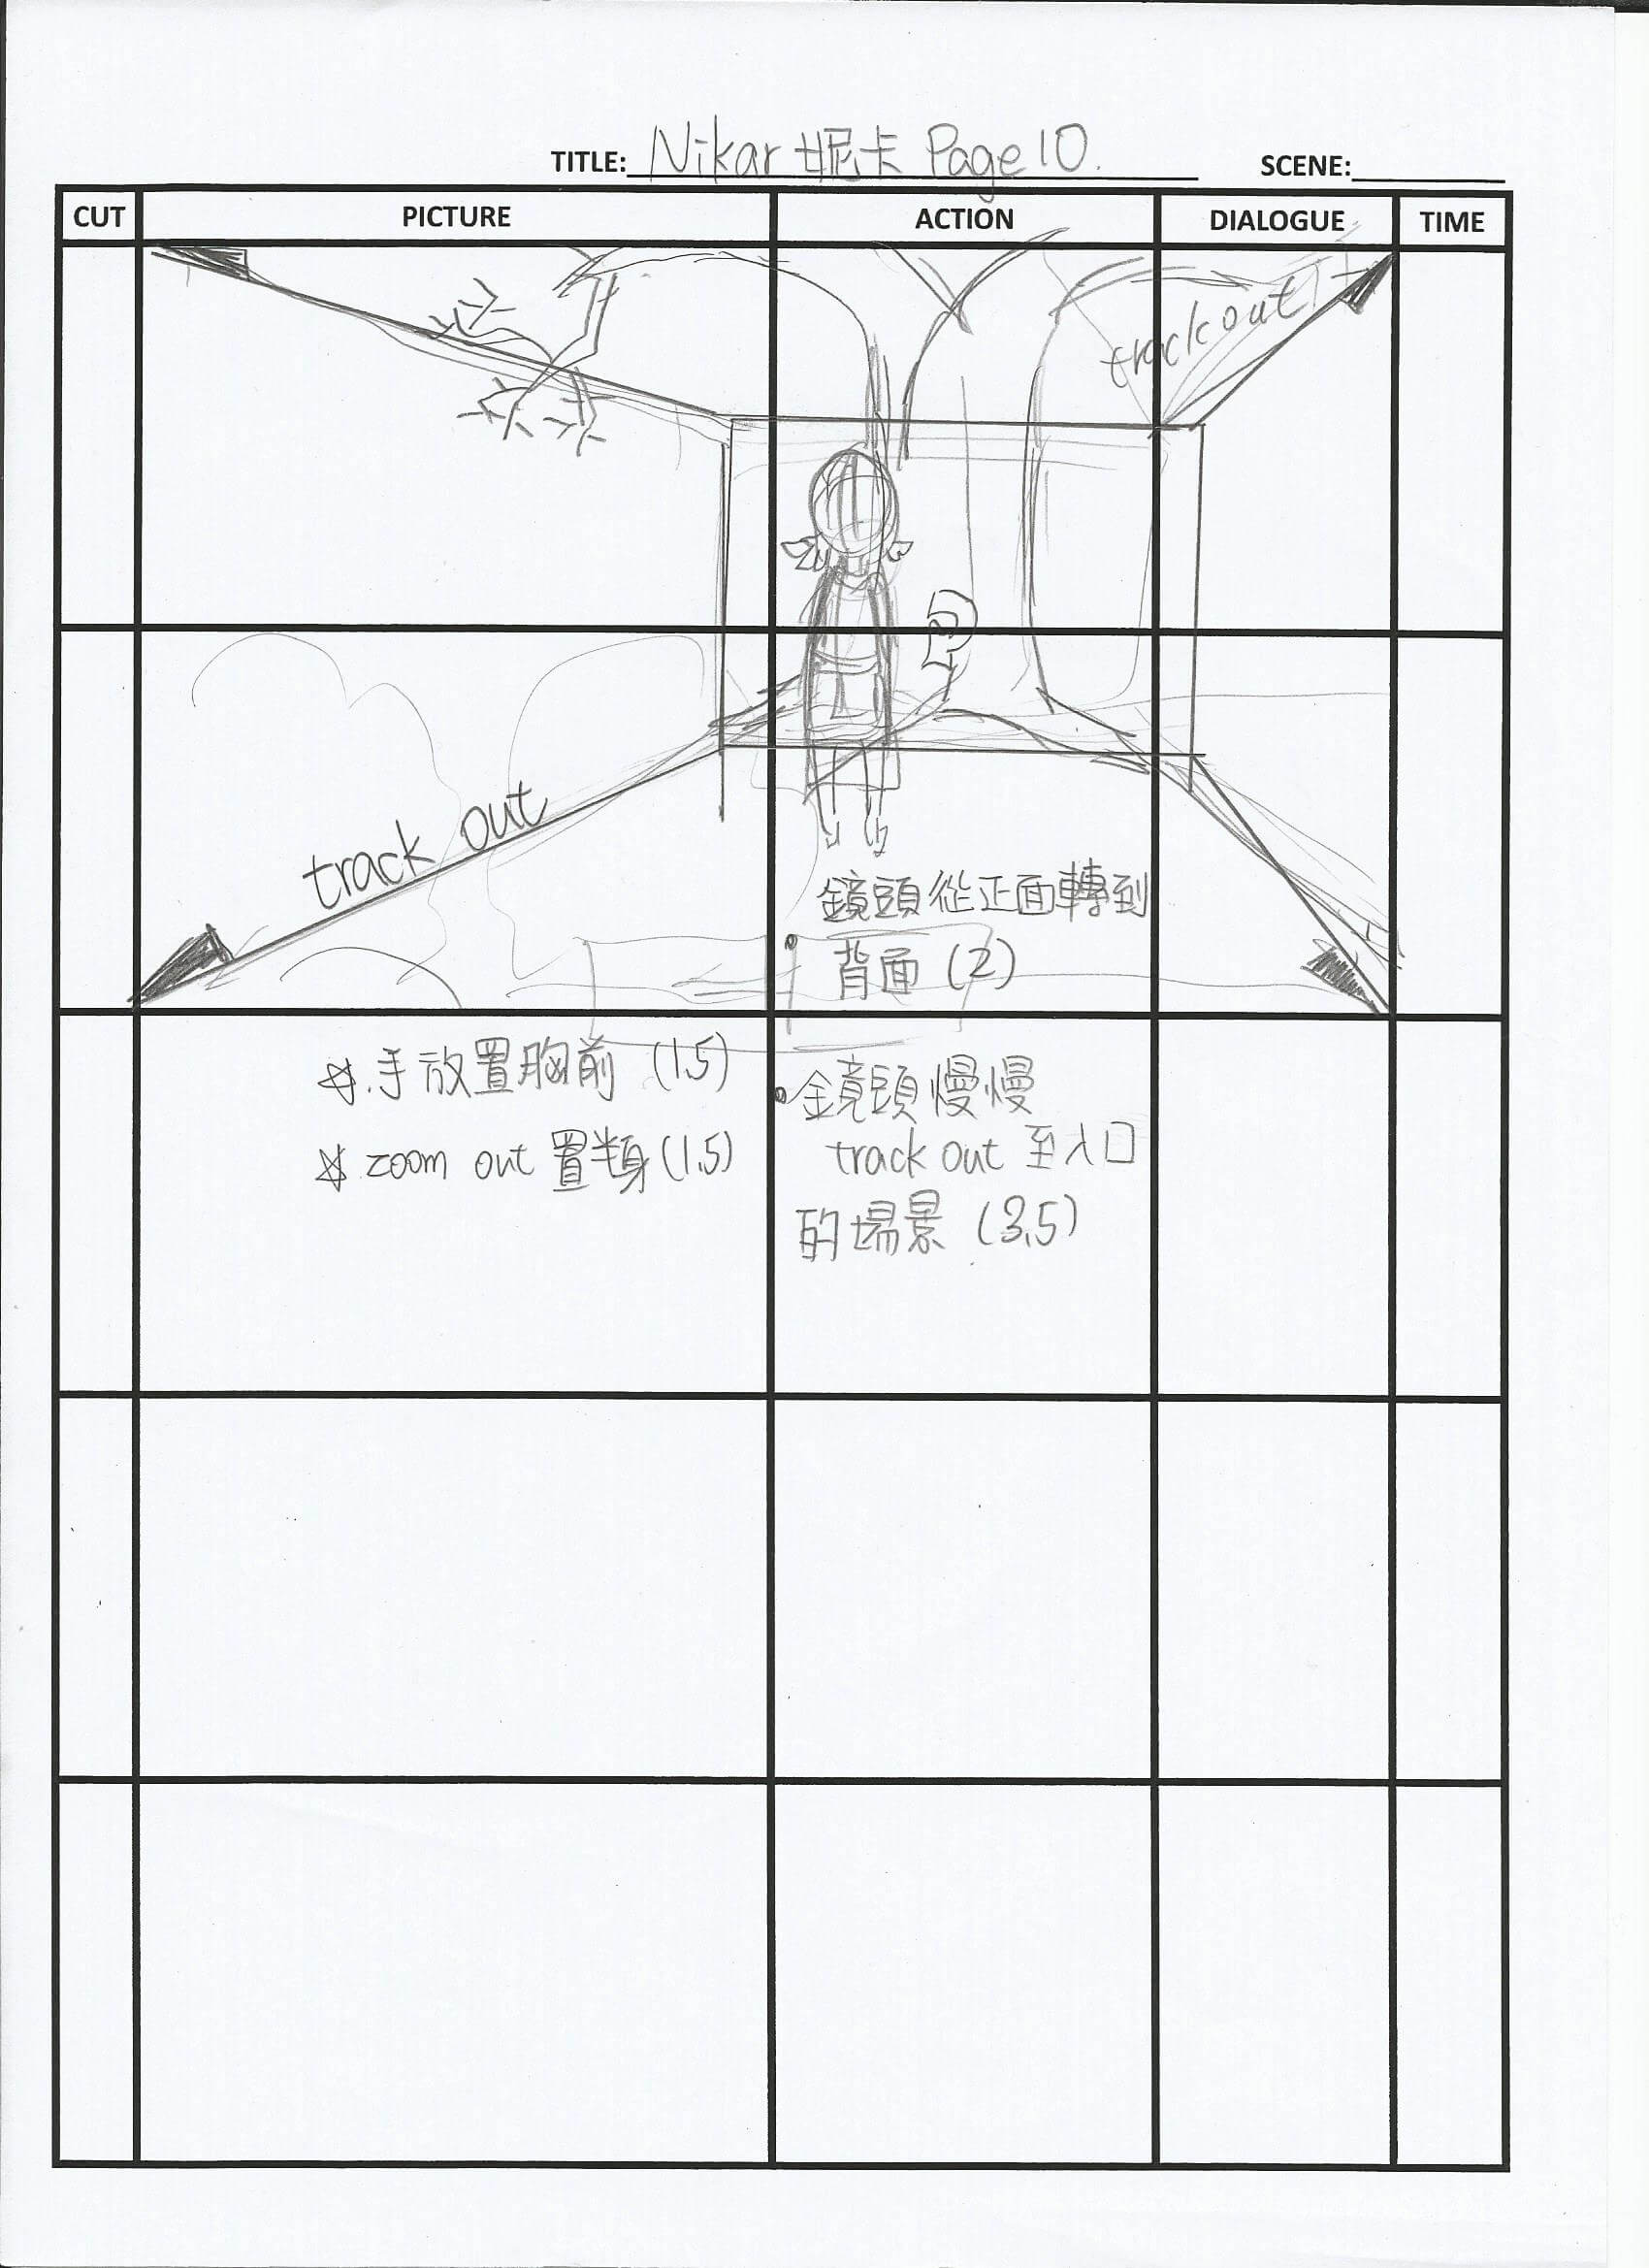 TITLE: Nikar 妮卡 Page 10.
SCENE:
CUT PICTURE ACTION DIALOGUE TIME
track out
track out
鏡頭從正面轉到
背面 (2)
手放置胸前 (1.5)
zoom out 置半身 (1.5)
鏡頭慢慢
track out 至入口
的場景 (3.5)